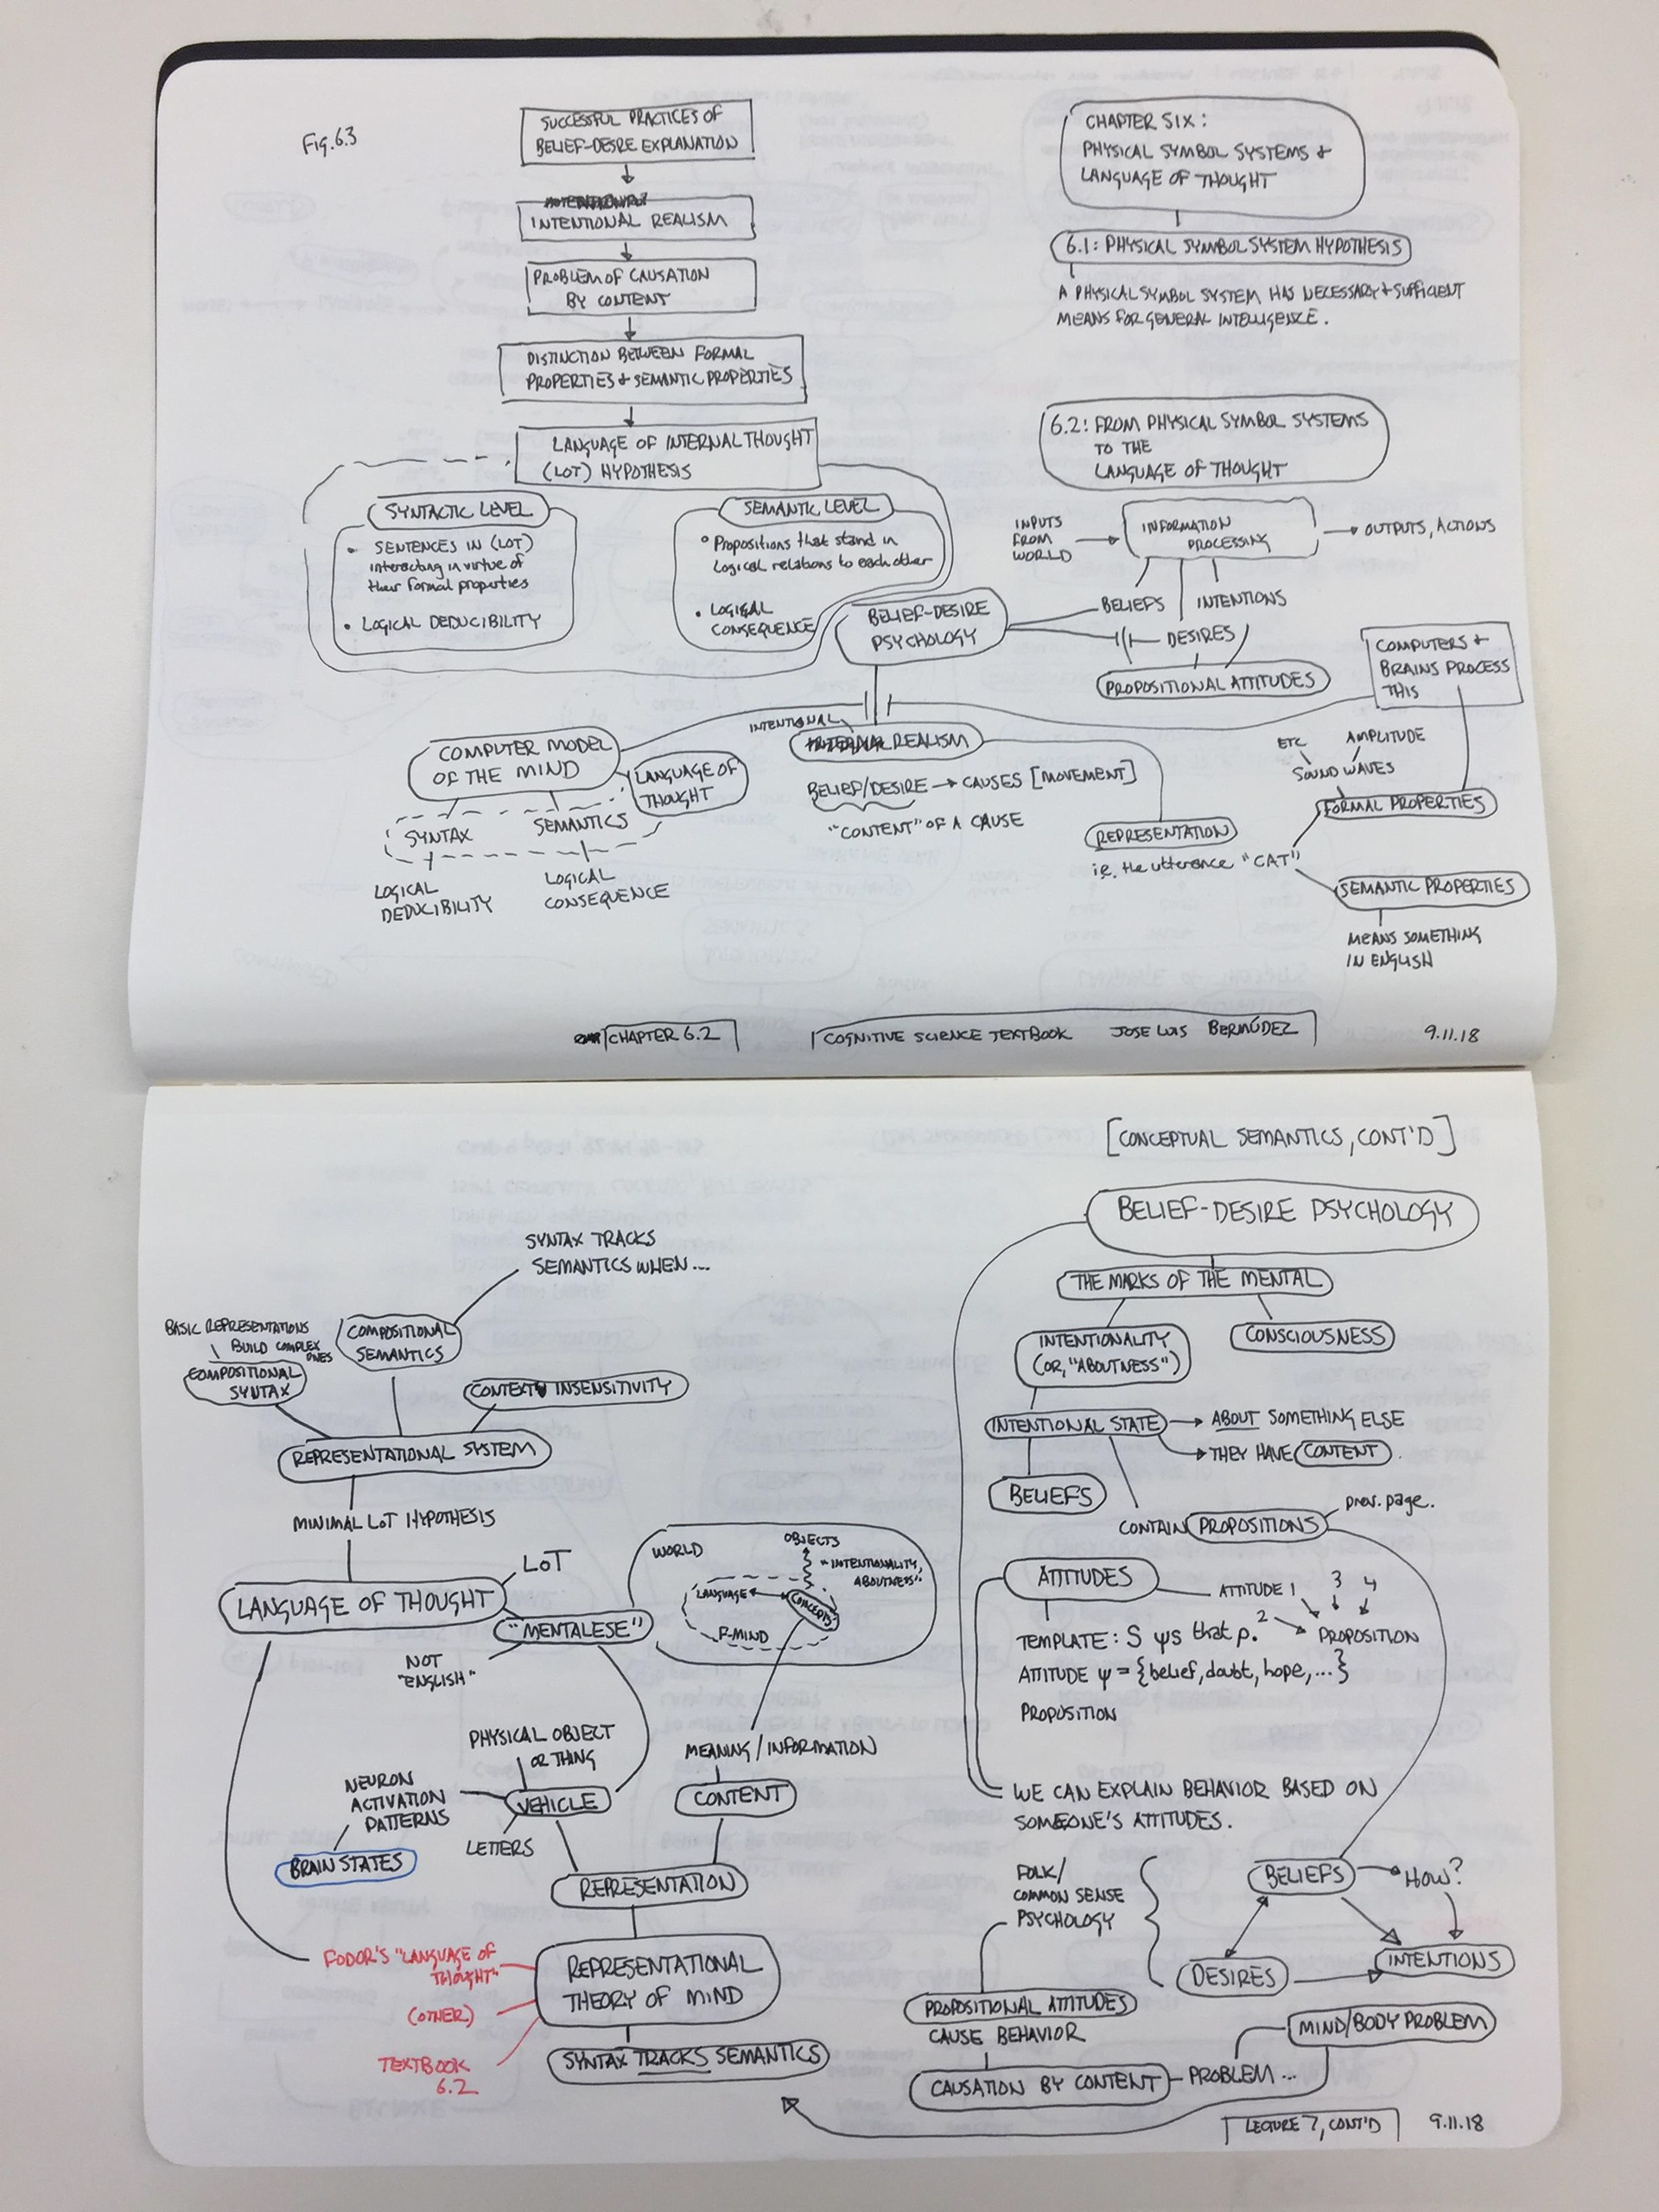 Fig. 6.3
SUCCESSFUL PRACTICES OF
BELIEF-DESIRE EXPLANATION
INTENTIONAL REALISM
PROBLEM OF CAUSATION
BY CONTENT
DISTINCTION BETWEEN FORMAL
PROPERTIES + SEMANTIC PROPERTIES
LANGUAGE OF INTERNAL THOUGHT
(LOT) HYPOTHESIS
SYNTACTIC LEVEL
• SENTENCES IN (LOT)
interacting in virtue of
their formal properties
• LOGICAL DEDUCIBILITY
SEMANTIC LEVEL
• Propositions that stand in
logical relations to each other
• LOGICAL
CONSEQUENCE
CHAPTER SIX:
PHYSICAL SYMBOL SYSTEMS +
LANGUAGE OF THOUGHT
6.1: PHYSICAL SYMBOL SYSTEM HYPOTHESIS
A PHYSICAL SYMBOL SYSTEM HAS NECESSARY + SUFFICIENT
MEANS FOR GENERAL INTELLIGENCE.
6.2: FROM PHYSICAL SYMBOL SYSTEMS
TO THE
LANGUAGE OF THOUGHT
INPUTS
FROM
WORLD
INFORMATION
PROCESSING
OUTPUTS, ACTIONS
BELIEFS
INTENTIONS
DESIRES
BELIEF-DESIRE
PSYCHOLOGY
PROPOSITIONAL ATTITUDES
COMPUTERS +
BRAINS PROCESS
THIS
COMPUTER MODEL
OF THE MIND
LANGUAGE OF
THOUGHT
SYNTAX
SEMANTICS
LOGICAL
DEDUCIBILITY
LOGICAL
CONSEQUENCE
INTENTIONAL
REALISM
BELIEF/DESIRE → CAUSES [MOVEMENT]
"CONTENT" OF A CAUSE
REPRESENTATION
i.e. the utterence "CAT"
ETC
AMPLITUDE
SOUND WAVES
FORMAL PROPERTIES
SEMANTIC PROPERTIES
MEANS SOMETHING
IN ENGLISH
CHAPTER 6.2
COGNITIVE SCIENCE TEXTBOOK JOSE LUIS BERMÚDEZ
9.11.18
[CONCEPTUAL SEMANTICS, CONT'D]
SYNTAX TRACKS
SEMANTICS WHEN...
BASIC REPRESENTATIONS
BUILD COMPLEX
ONES
COMPOSITIONAL
SYNTAX
COMPOSITIONAL
SEMANTICS
CONTEXT INSENSITIVITY
REPRESENTATIONAL SYSTEM
MINIMAL LOT HYPOTHESIS
LANGUAGE OF THOUGHT
LOT
"MENTALESE"
NOT
"ENGLISH"
WORLD
OBJECTS
"INTENTIONALITY,
ABOUTNESS"
LANGUAGE
CONCEPTS
F-MIND
PHYSICAL OBJECT
OR THING
NEURON
ACTIVATION
PATTERNS
VEHICLE
LETTERS
BRAIN STATES
MEANING/INFORMATION
CONTENT
REPRESENTATION
REPRESENTATIONAL
THEORY OF MIND
SYNTAX TRACKS SEMANTICS
FODOR'S "LANGUAGE OF
THOUGHT"
(OTHER)
TEXTBOOK
6.2
BELIEF-DESIRE PSYCHOLOGY
THE MARKS OF THE MENTAL
INTENTIONALITY
(OR, "ABOUTNESS")
CONSCIOUSNESS
INTENTIONAL STATE → ABOUT SOMETHING ELSE
→ THEY HAVE CONTENT.
BELIEFS
CONTAIN PROPOSITIONS
prev. page.
ATTITUDES
ATTITUDE 1 3 4
TEMPLATE: S ψs that p. 2 → PROPOSITION
ATTITUDE ψ = {belief, doubt, hope, ...}
PROPOSITION
WE CAN EXPLAIN BEHAVIOR BASED ON
SOMEONE'S ATTITUDES.
FOLK/
COMMON SENSE
PSYCHOLOGY
BELIEFS → HOW?
DESIRES
INTENTIONS
PROPOSITIONAL ATTITUDES
CAUSE BEHAVIOR
CAUSATION BY CONTENT
PROBLEM...
MIND/BODY PROBLEM
LECTURE 7, CONT'D
9.11.18